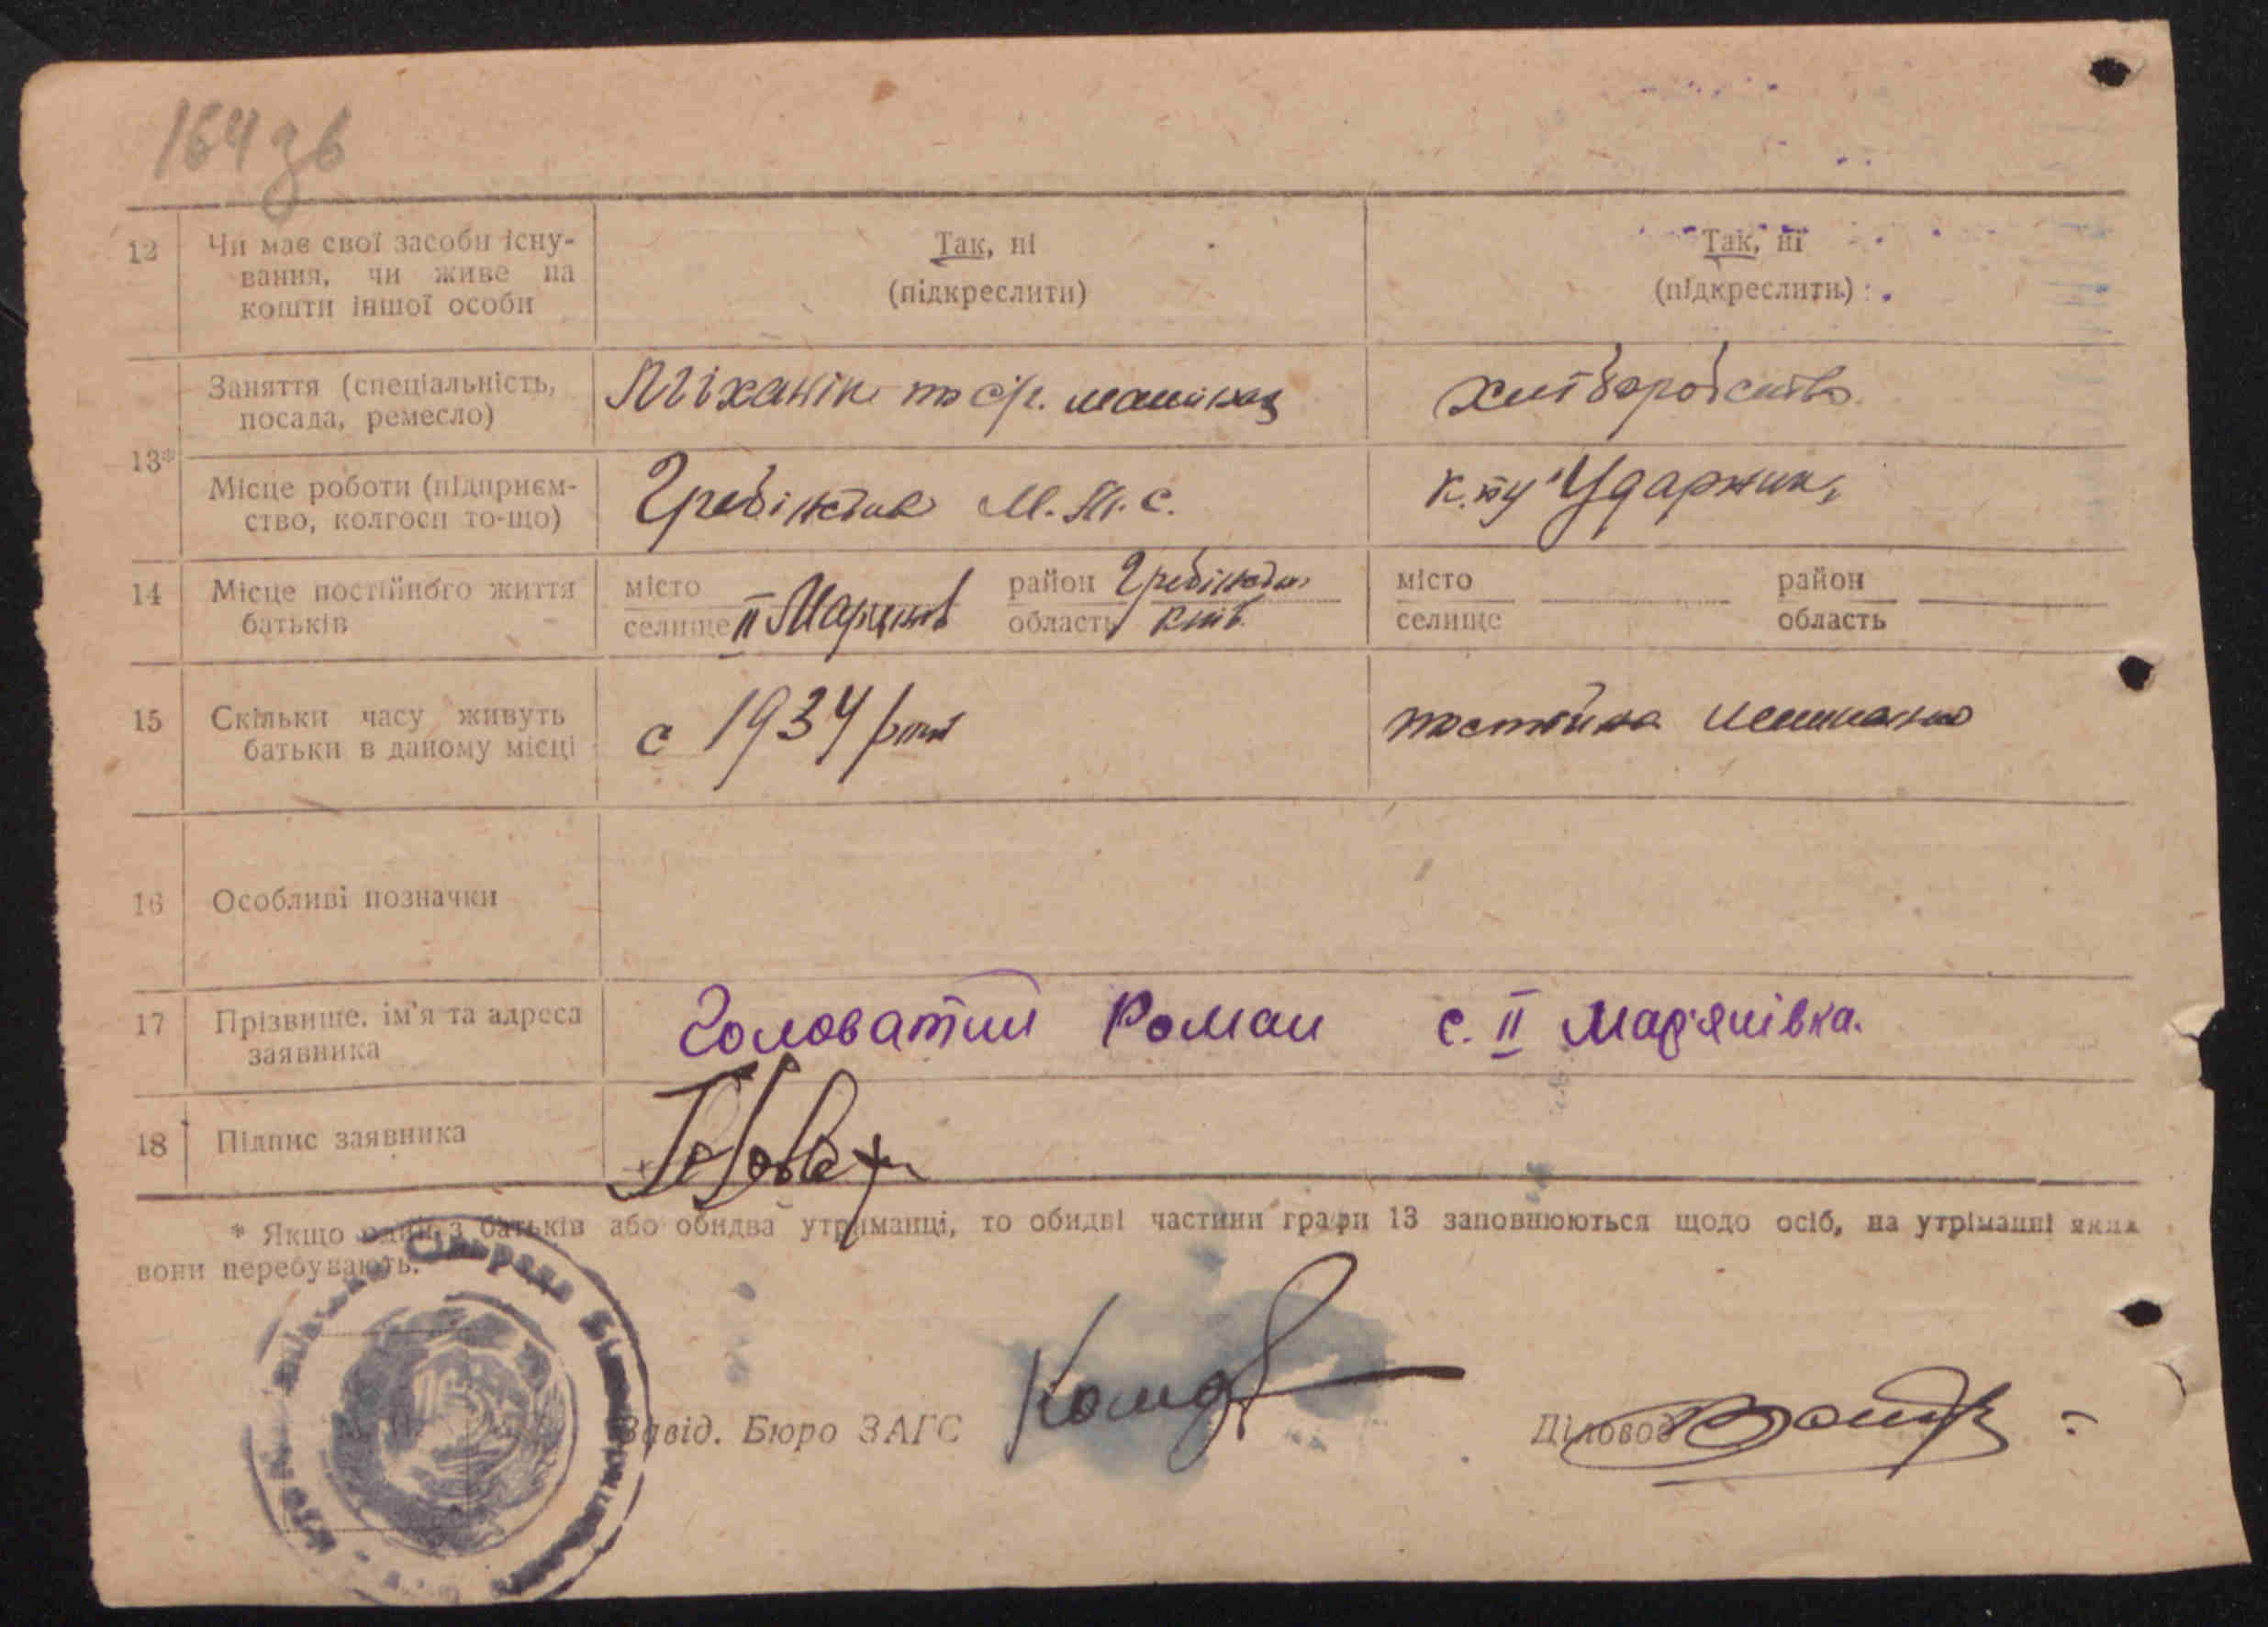 164 зв
12 Чи має свої засоби існу-
вання, чи живе на
кошти іншої особи
Так, ні
(підкреслити)
Так, ні
(підкреслити)
13*
Заняття (спеціальність,
посада, ремесло)
Міханік по с/г. машинах
хліборобство
Місце роботи (підприєм-
ство, колгосп то-що)
М.Т.С.
Ударник
14 Місце постійного життя
батьків
місто
селище II
район
область Київ.
місто
селище
район
область
15 Скільки часу живуть
батьки в даному місці
с 1934 року
постійна
16 Особливі позначки
17 Прізвище, ім'я та адреса
заявника
Головатий Роман с. II Мар'янівка.
18 Підпис заявника
Головат
* Якщо один з батьків або обидва утриманці, то обидві частини графи 13 заповнюються щодо осіб, на утріманні яких
вони перебувають.
Завід. Бюро ЗАГС
Діловод